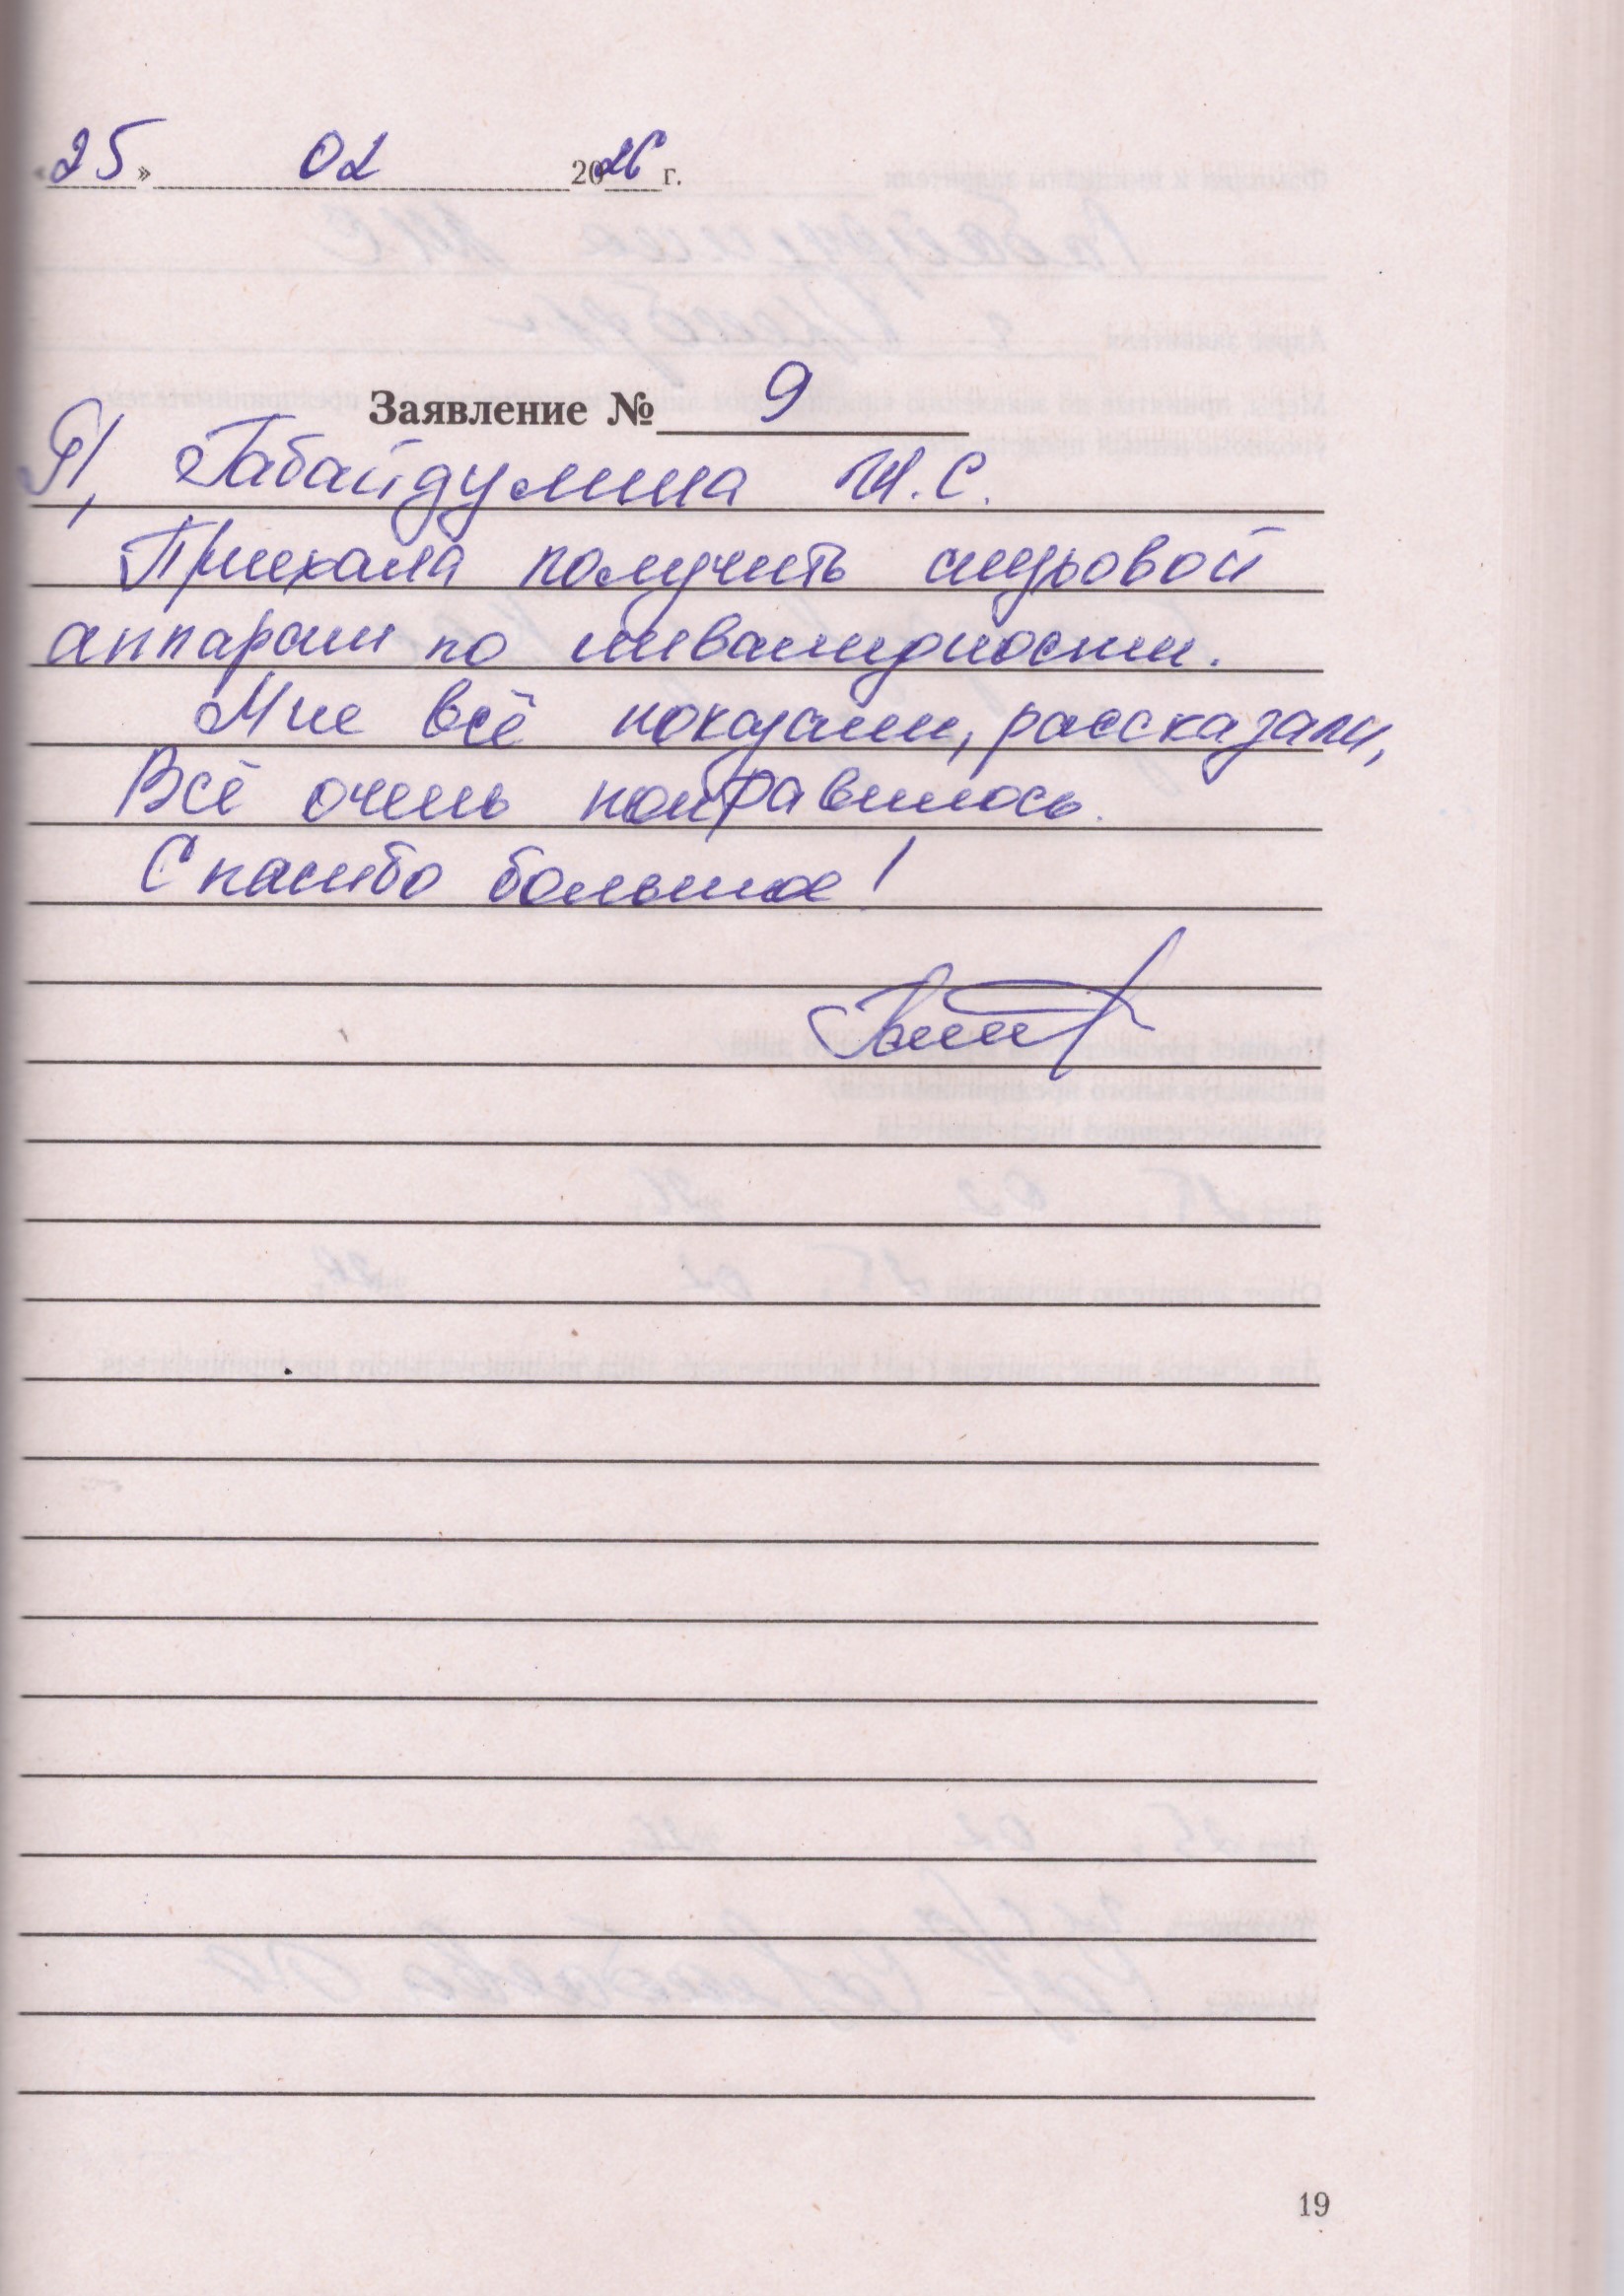 «25» 02 2026 г.
Заявление № 9
Я, Габайдулина И.С.
Приехала получить слуховой
аппарат по инвалидности.
Мне всё показали, рассказали,
Всё очень понравилось.
Спасибо большое!
19